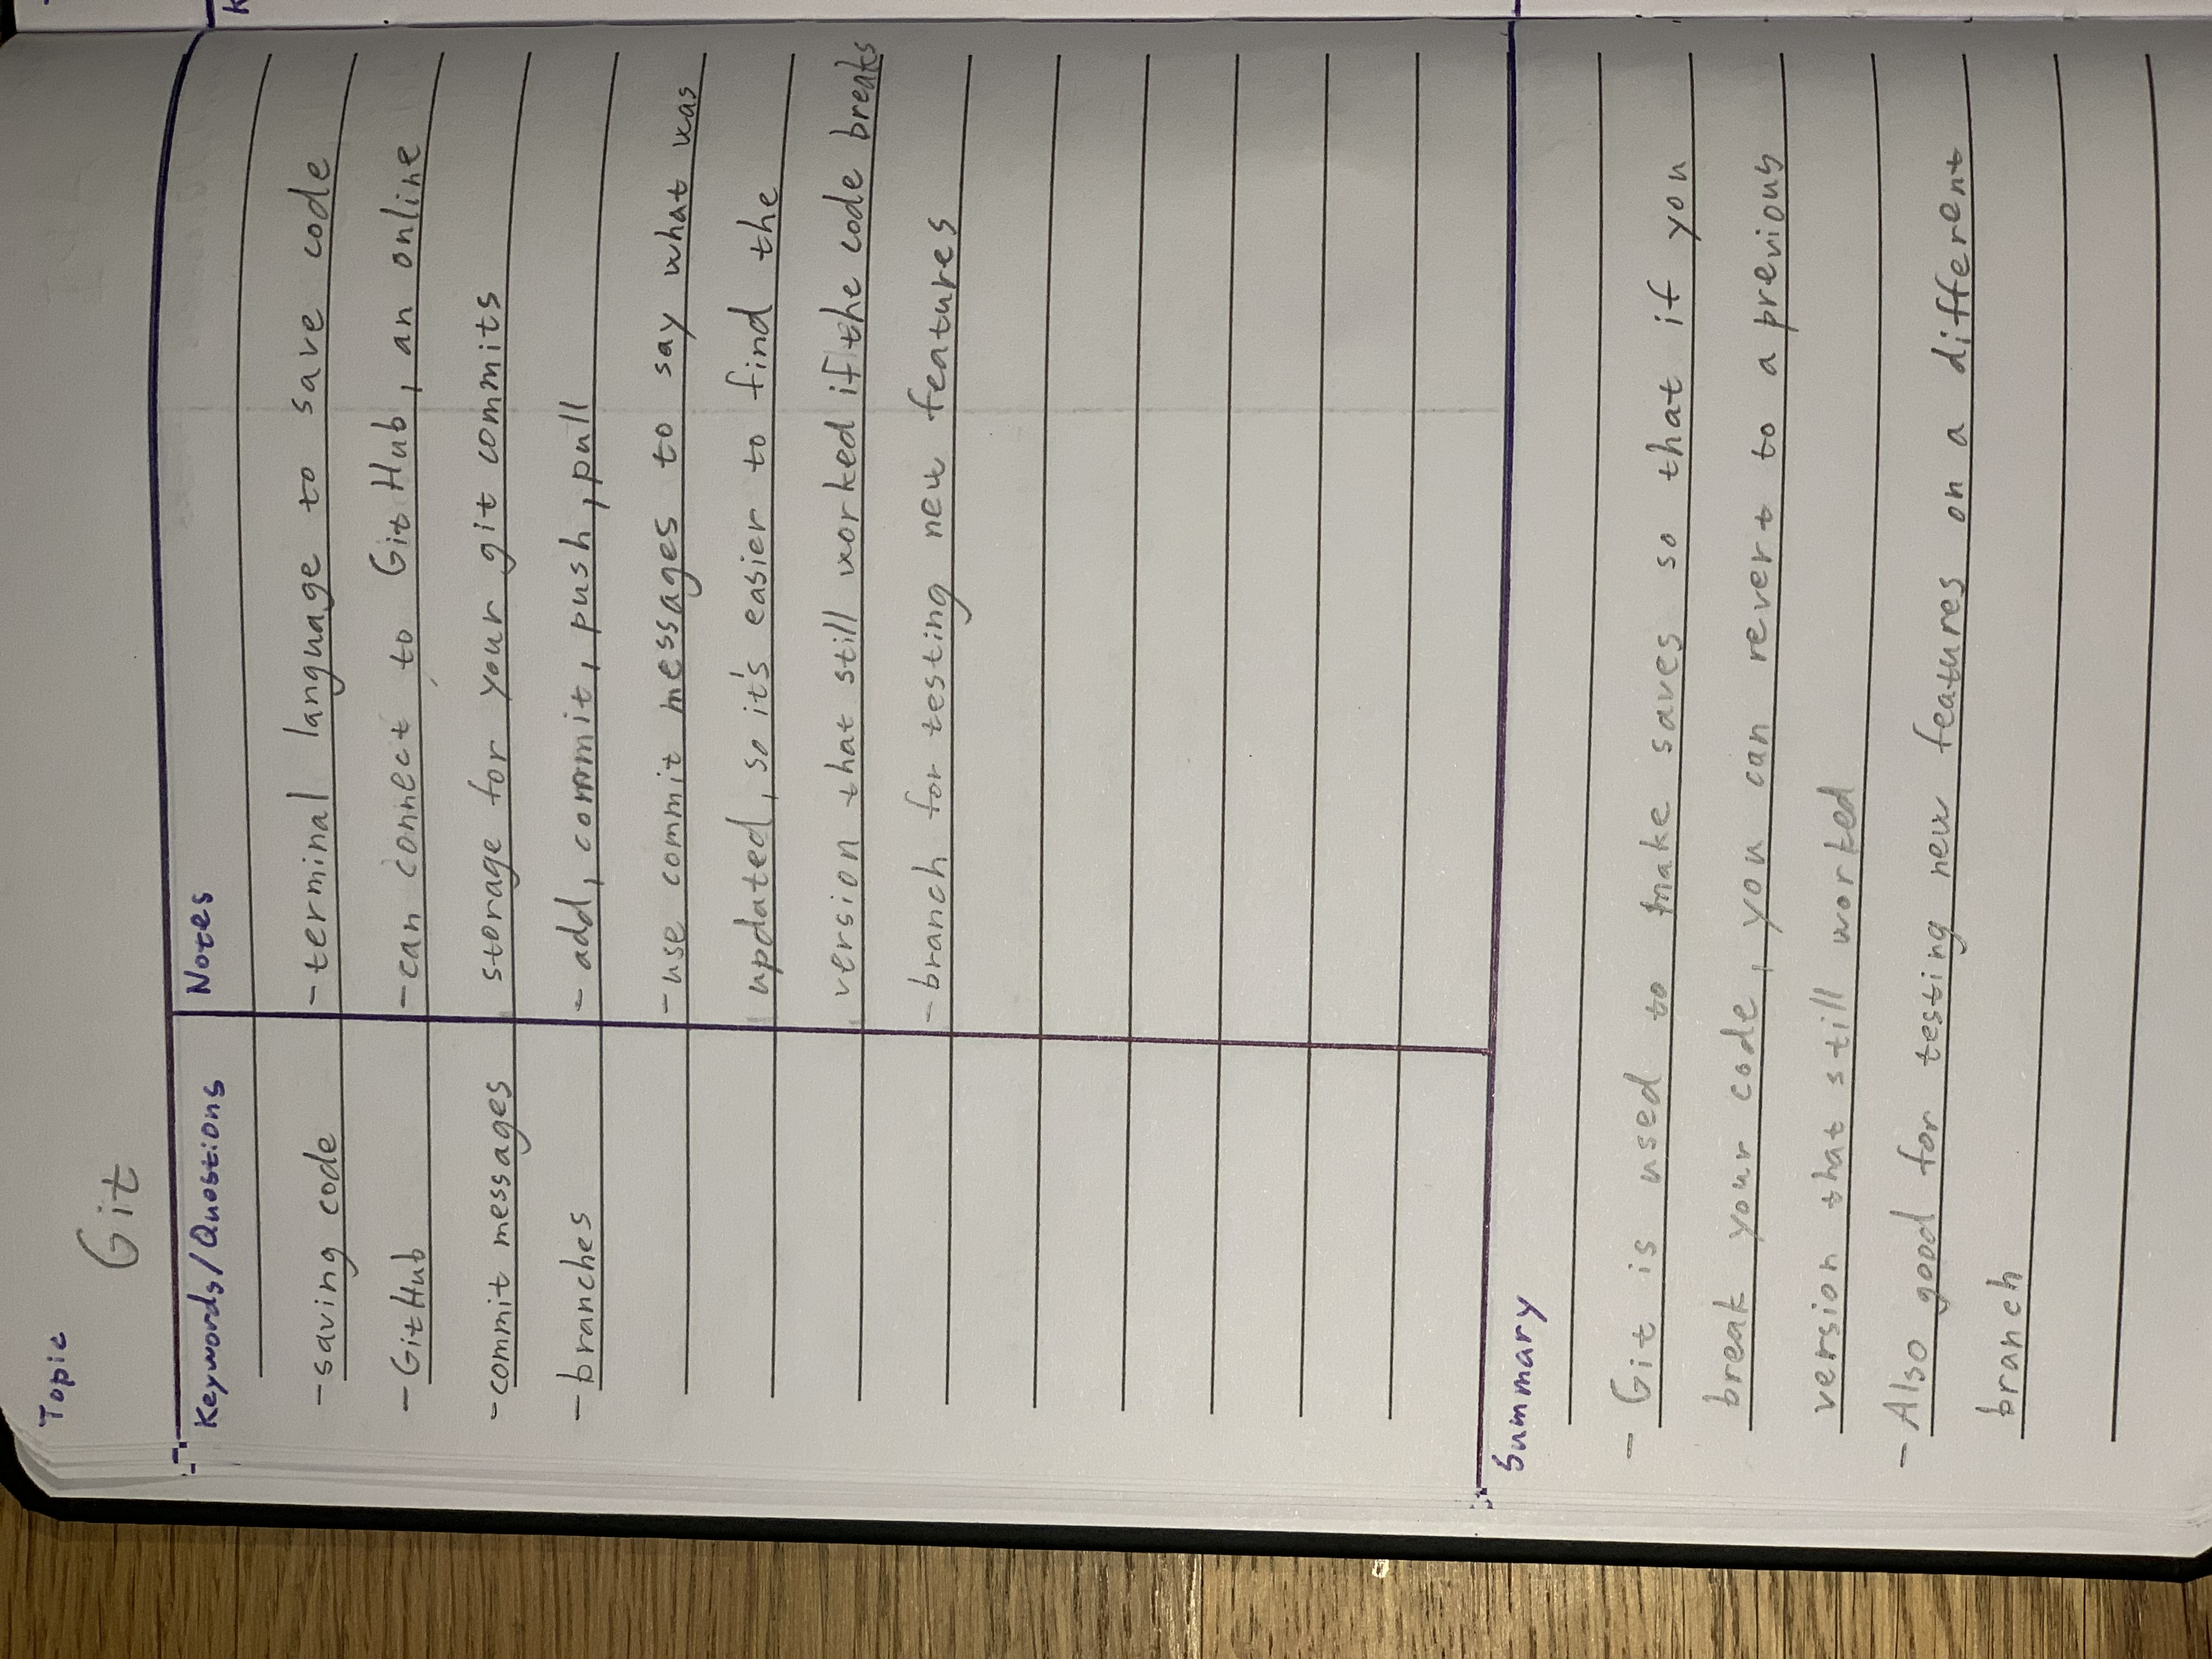 Topic
Git
Keywords/Questions
- saving code
- GitHub
- commit messages
- branches
Notes
- terminal language to save code
- can connect to GitHub, an online
storage for your git commits
- add, commit, push, pull
- use commit messages to say what was
updated, so it's easier to find the
version that still worked if the code breaks
- branch for testing new features
Summary
- Git is used to make saves so that if you
break your code, you can revert to a previous
version that still worked
- Also good for testing new features on a different
branch